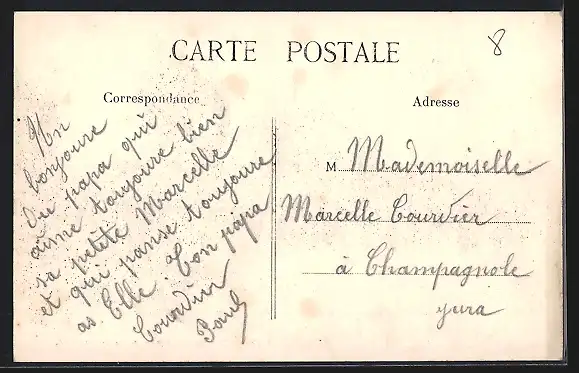 8
CARTE POSTALE
Correspondance
Adresse
Un
bonjoure
du papa qui
aime toujoure bien
sa petite Marcelle
et qui panse toujoure
as Elle. Ton papa
Courdier
Paul
M Mademoiselle
Marcelle Courdier
à Champagnole
jura